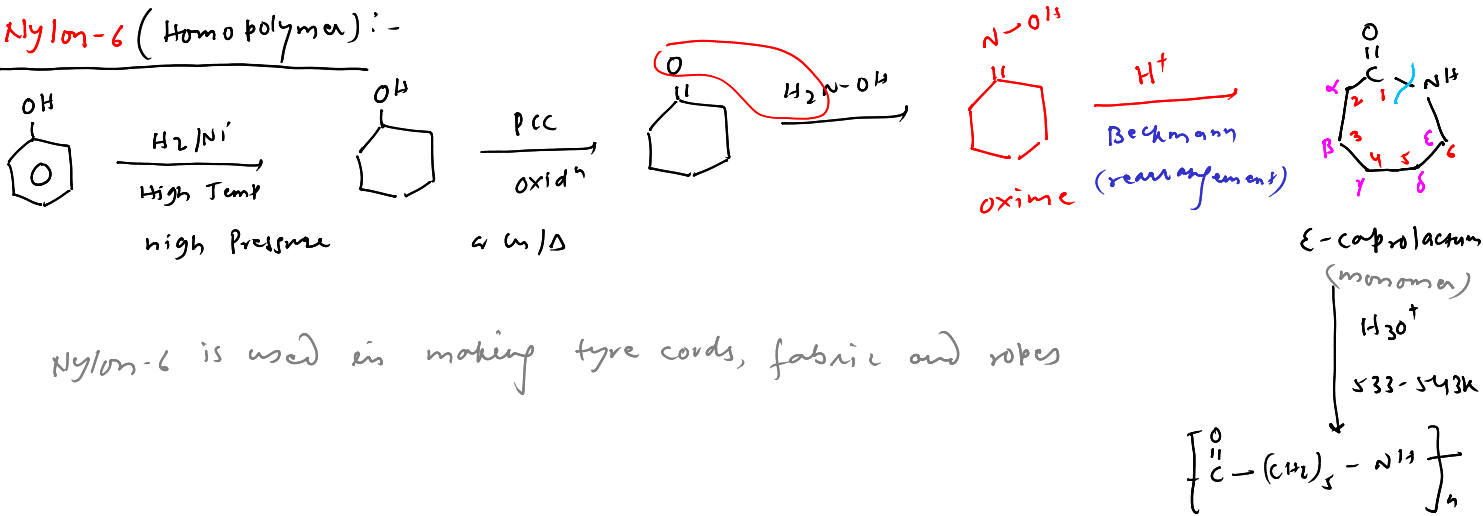 Nylon-6 (Homopolymer):-
OH
H2/Ni
High Temp
high Pressure
OH
PCC
oxidn
or Cu/Δ
O
H2N-OH
N-OH
oxime
H+
Beckmann
(rearrangement)
O
C
NH
α 2 1
β 3 ε 6
4 5
γ δ
ε-caprolactum
(monomer)
H3O+
533-543K
O
[C-(CH2)5-NH]n
Nylon-6 is used in making tyre cords, fabric and ropes